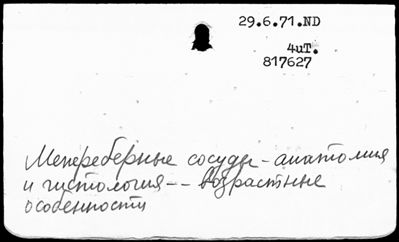 29.6.71.ND
4иТ.
817627
Межреберные сосуды - анатомия
и гистология -- возрастные
особенности